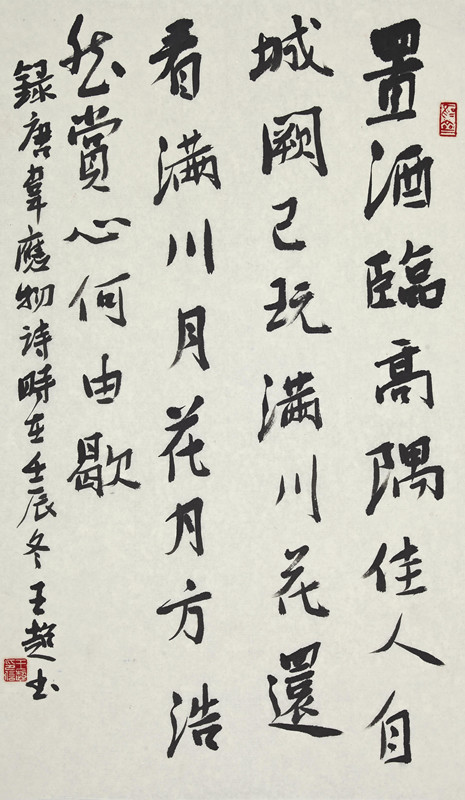 置酒臨高隅佳人自
城闕已玩满川花還
看满川月花月方浩
然賞心何由歇
録唐韋應物詩時在壬辰冬王超书